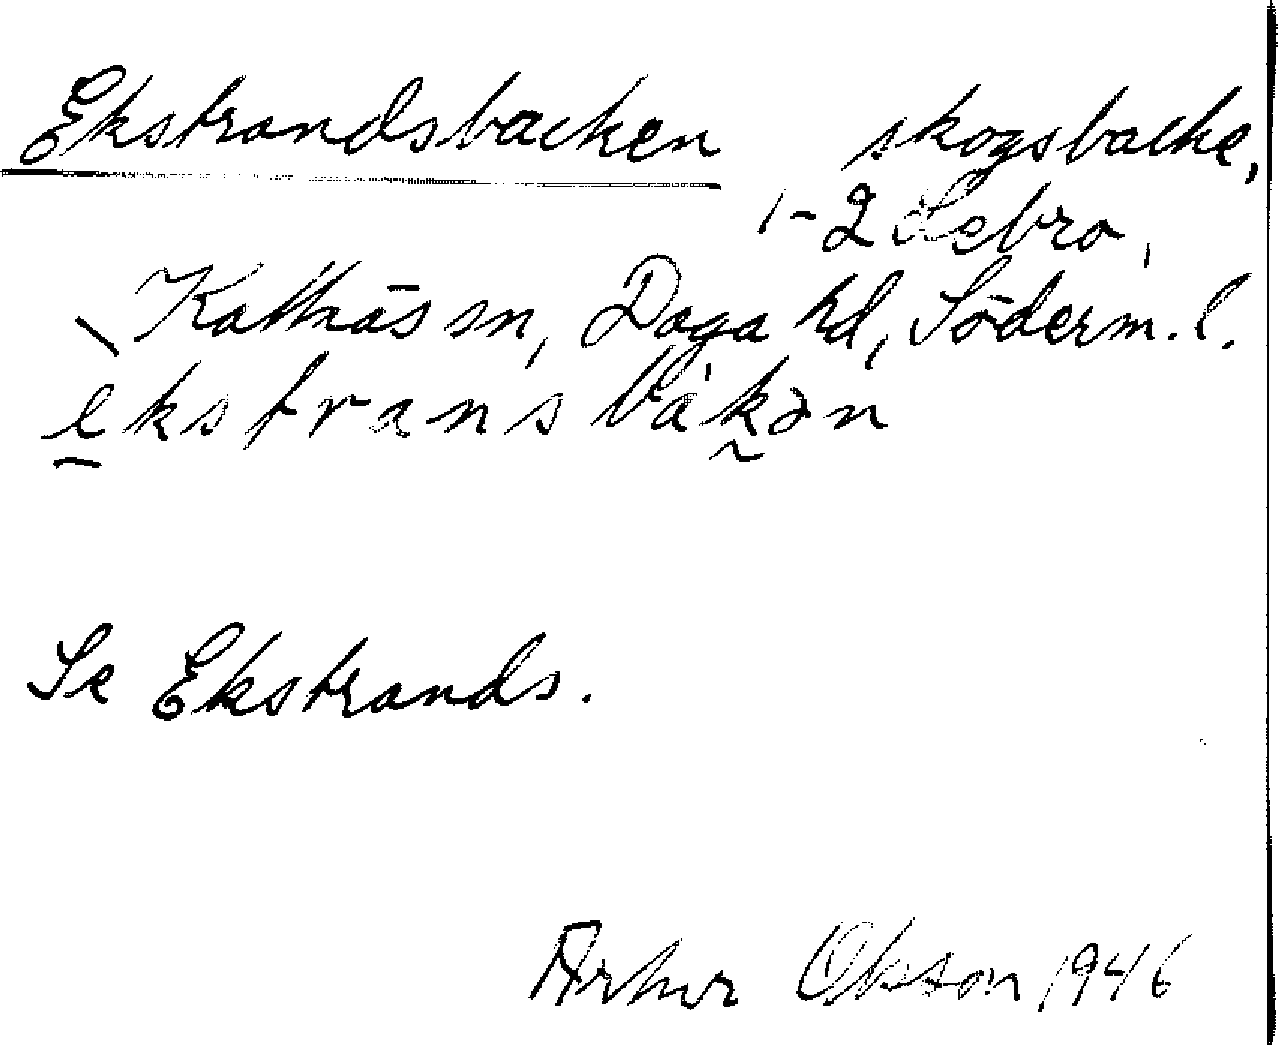 Ekstrandsbacken skogsbacke,
1-2
Kattnäs sn, Daga hd, Söderm. l.
èkstransbákən
Se Ekstrands.
Arthur 1946